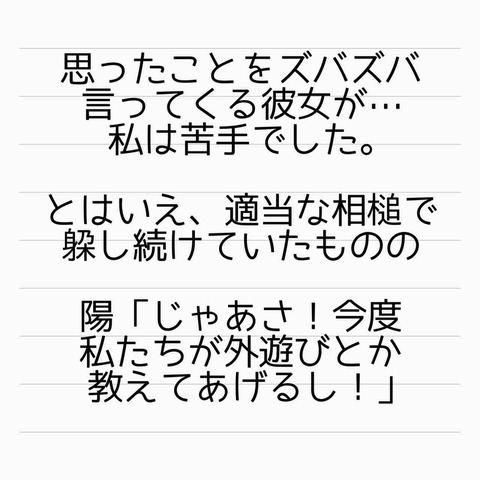 思ったことをズバズバ
言ってくる彼女が…
私は苦手でした。
とはいえ、適当な相槌で
躱し続けていたものの
陽「じゃあさ！今度
私たちが外遊びとか
教えてあげるし！」